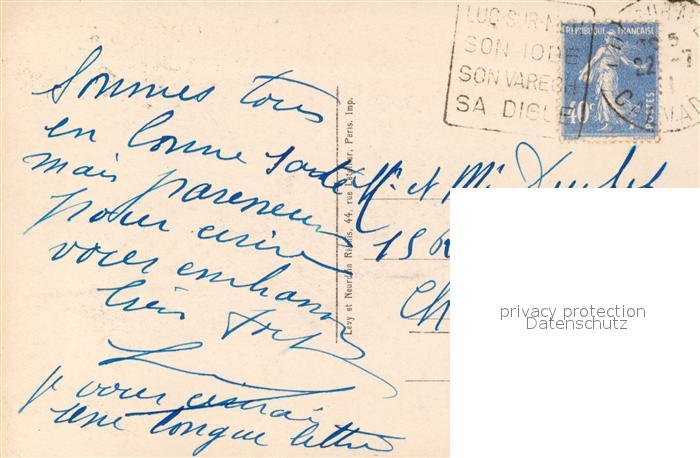 LUC-SUR-M
SON IODE
SON VARECH
SA DIGUE
REPUBLIQUE FRANÇAISE
40c
POSTES
22 -7
Sommes tous
en bonne santé
mais paresseux
pour écrire
vous embrassons
bien fort
je vous écrirai
une longue lettre
Levy et Neurdein Réunis, 44, rue Letellier, Paris. Imp.
Mr et Me
15
Ch
privacy protection
Datenschutz